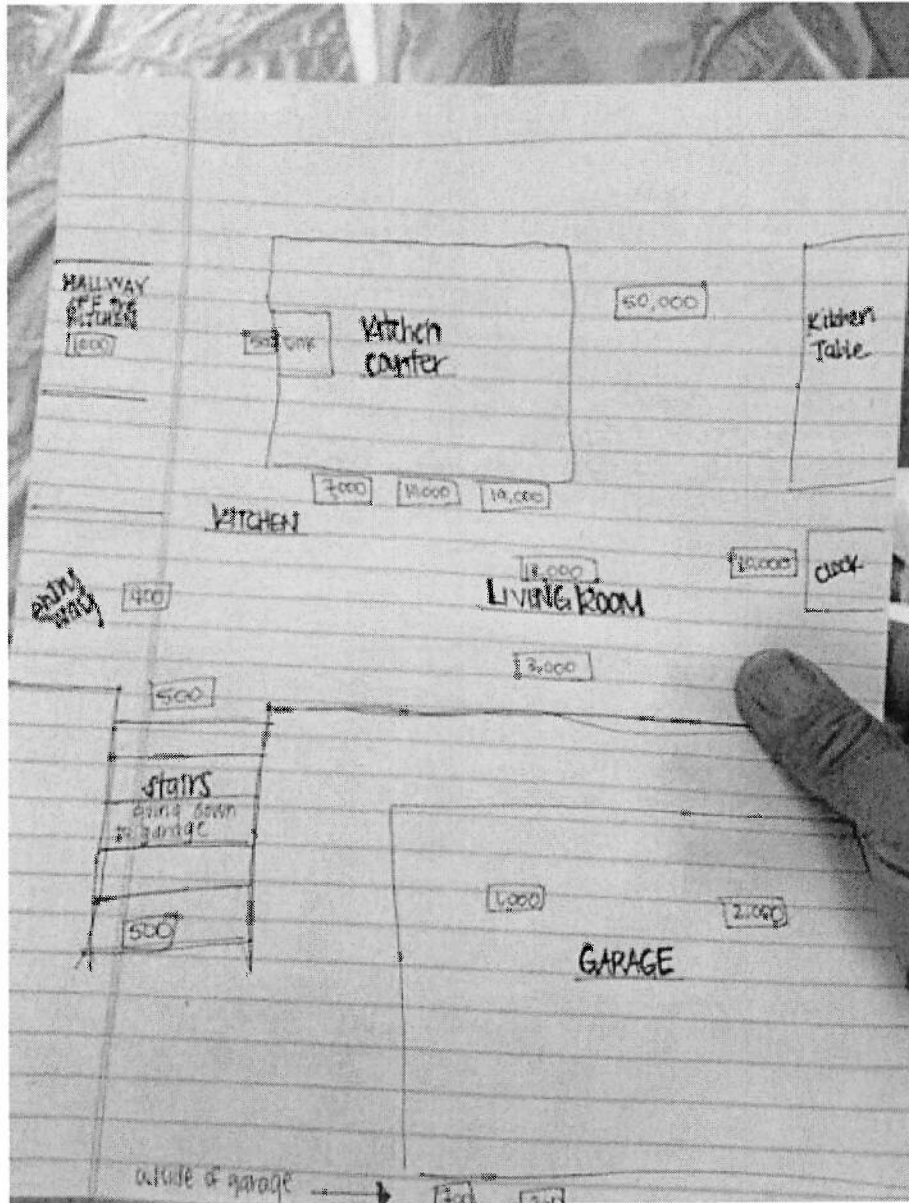 HALLWAY
OFF the
KITCHEN
1000
500
Kitchen
counter
50,000
Kitchen
Table
7,000
19,000
KITCHEN
18,000
LIVING ROOM
CLOCK
entry
way
400
3,000
500
stairs
going down
to garage
500
1,000
2,000
GARAGE
outside of garage